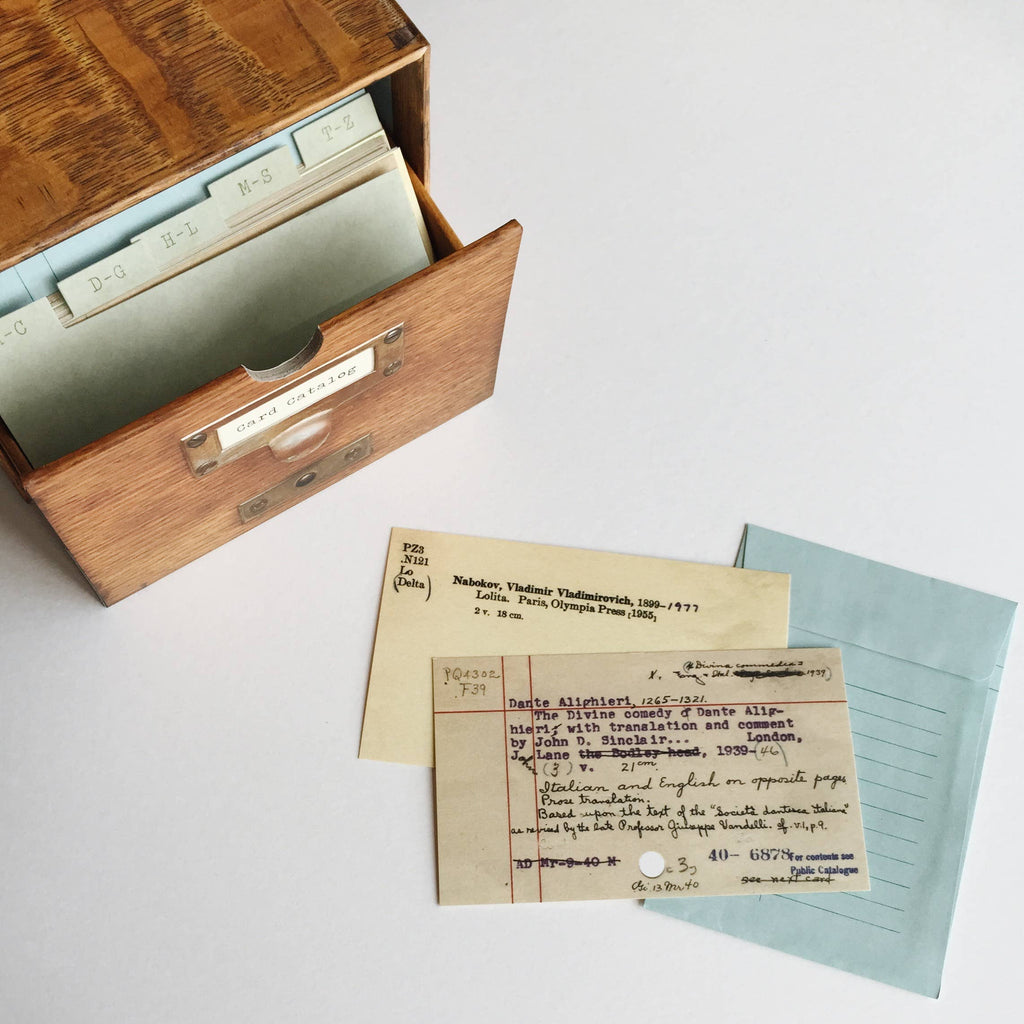 T-Z
M-S
H-L
D-G
-C
Card Catalog
PZ3
.N121
Lo
(Delta)
Nabokov, Vladimir Vladimirovich, 1899-1977
Lolita. Paris, Olympia Press [1955]
2 v. 18 cm.
PQ4302
.F39
Divina commedia
1939)
Dante Alighieri, 1265-1321.
The Divine comedy of Dante Alig-
hieri; with translation and comment
by John D. Sinclair... London,
J. Lane the Bodley head, 1939-(46)
(3) v. 21 cm
Italian and English on opposite pages
Prose translation.
Based upon the text of the "Società dantesca italiana"
as revised by the late Professor Giuseppe Vandelli. cf. v.1, p.9.
AD Mr-9-40 M
c 3
40- 6878
For contents see
Public Catalogue
see next card
Gi 13 Mr 40